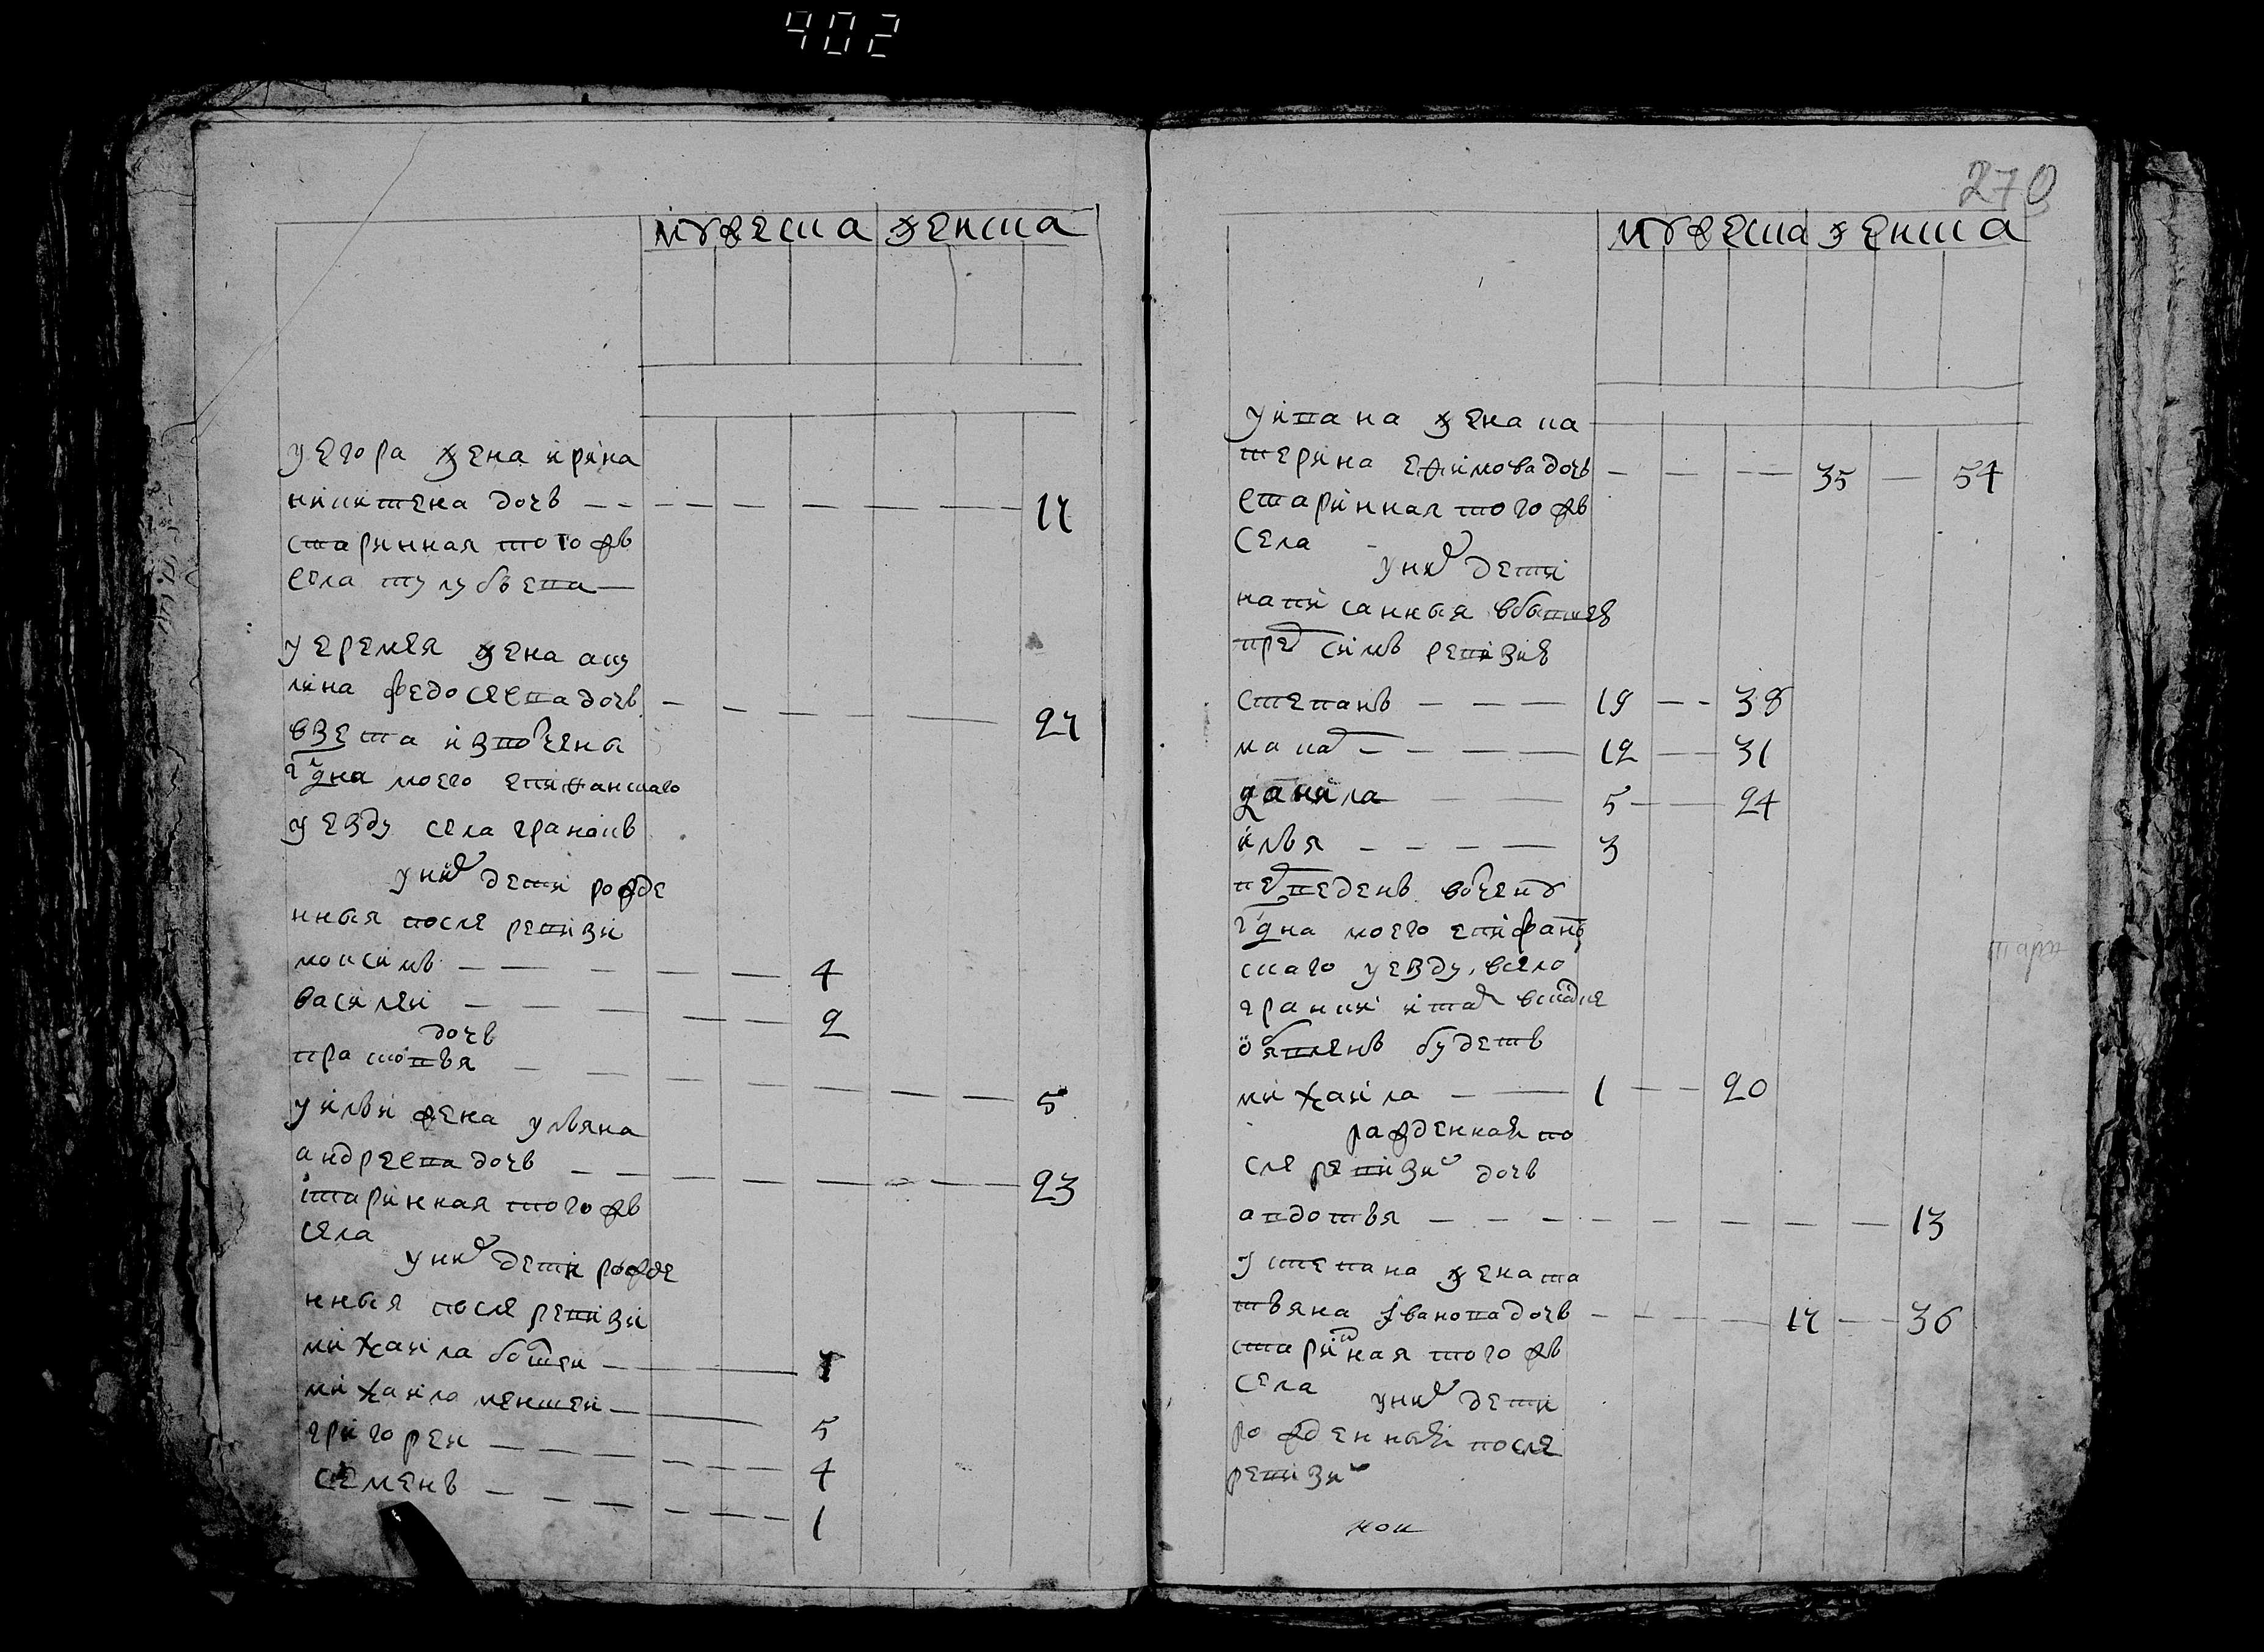 402
мужеска женска
у егора жена ирина
никитена дочь 17
старинная того жь
села тулубьева
у еремея жена аку
лина федосеева дочь 27
взета из вотчены
гдна моего епифанскаго
уезду села гранокь
у них дети рожде
нныя после ревизи
максимь 4
василеи 2
дочь
прасковья 5
у ильи жена ульяна
андреева дочь 23
старинная того жь
села
у них дети рожде
нныя после ревизи
михаила болшеи
михаила меншеи 5
григореи 4
семень 1
270
мужеска женска
у ивана жена ка
терина ефимова дочь 35 54
старинная того жь
села
у них дети
написанныя в бывшеь
пред симь ревизиь
степань 19 38
макар 12 31
данила 5 24
илья 3
переведень в вотчену
гдна моего епифань
скаго уезду в село
гранки и там в скаске
объявлень будеть
михаила 1 20
рожденная по
сле ревизи дочь
авдотья 13
у степана жена та
тьяна иванова дочь 17 36
старинная того жь
села
у них дети
рожденныя после
ревизи